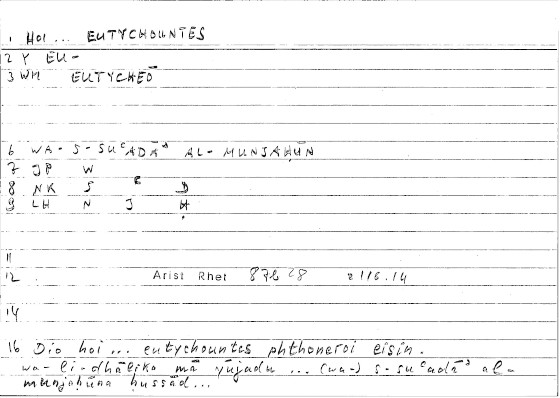 1 HOI ... EUTYCHOUNTES
2 Y EU-
3 WM EUTYCHEŌ
6 WA-S-SUᶜADĀʾ AL-MUNJAḤŪN
7 JP W
8 NK S ᶜ D
9 LH N J Ḥ
11
12 Arist Rhet 87b 28 = 116.14
14
16 Dio hoi ... eutychountes phthoneroi eisin.
wa-li-dhālika mā yūjadu ... (wa-) s-suᶜadāʾ al-
munjaḥūna ḥussād...